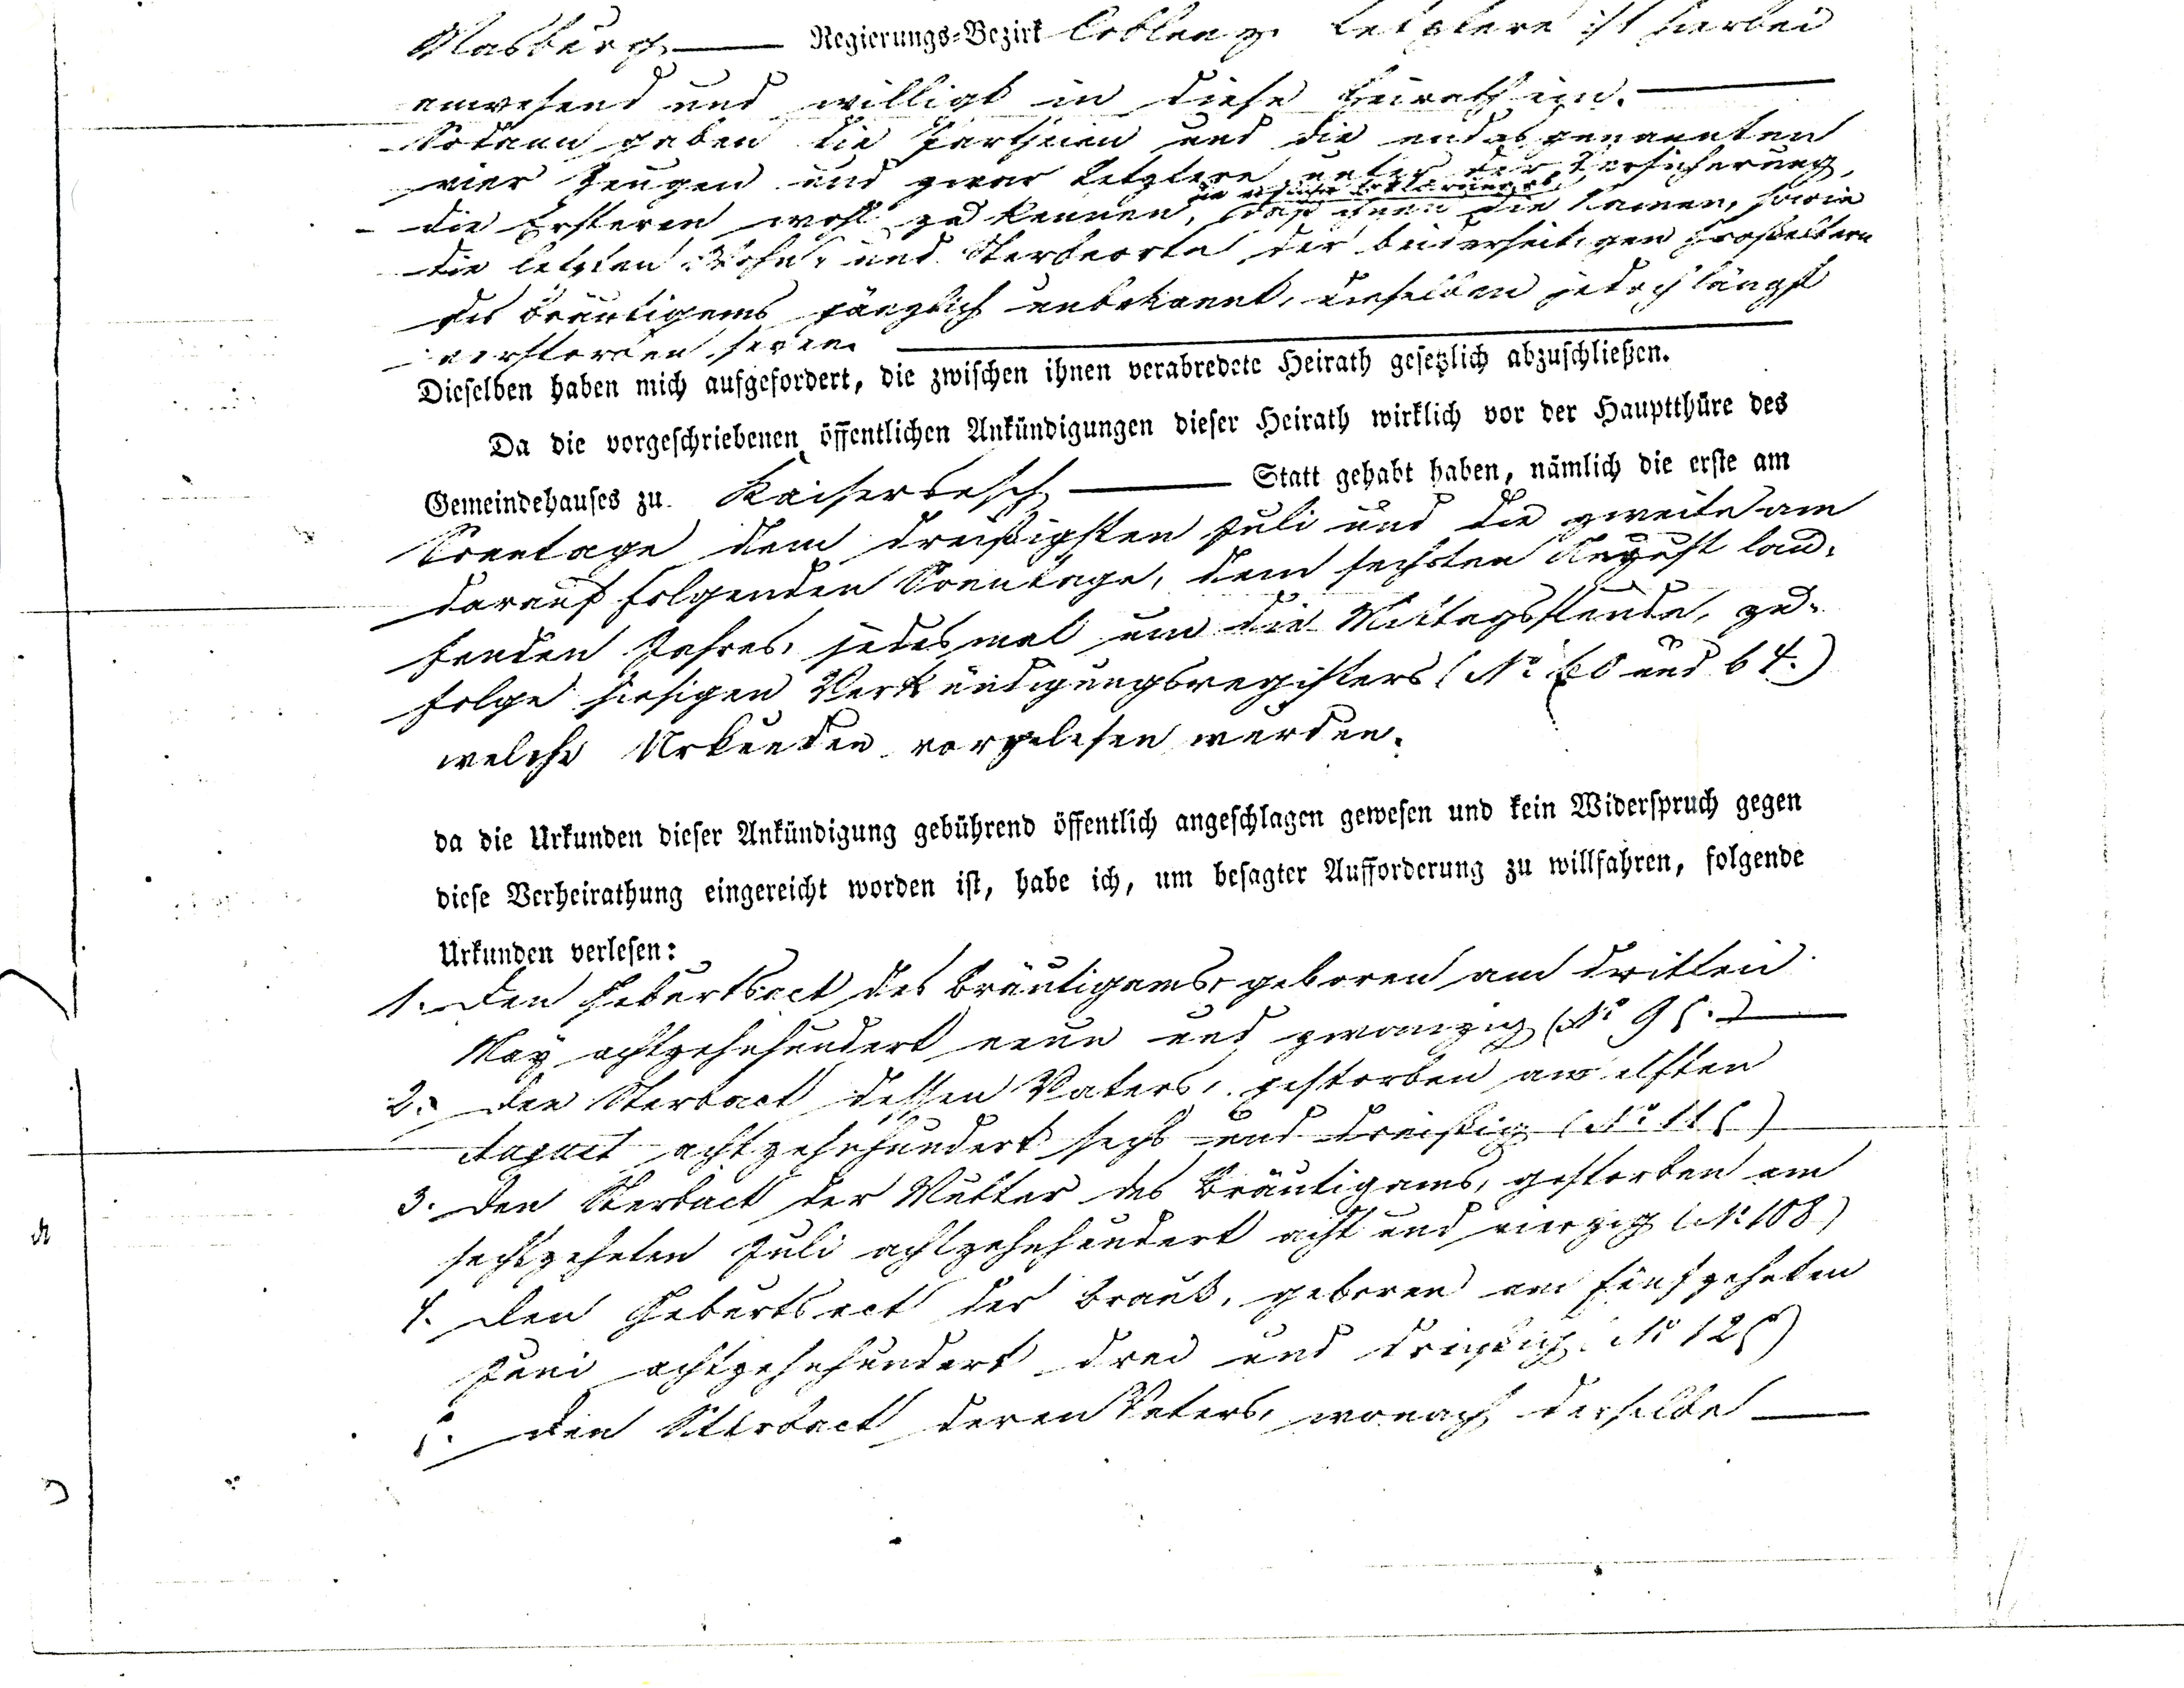 Masburg Regierungs-Bezirk Coblenz. Letztere ist hierbei
anwesend und willigt in diese Heirath ein.
Sodann gaben die Partheien und die endesgenannten
vier Zeugen und zwar Letztere unter der Versicherung,
die Ersteren wohl zu kennen, die Erklärung ab, daß ihnen die Namen, sowie
die letzten Wohn- und Sterbeorte der beiderseitigen Großeltern
des Bräutigams gänzlich unbekannt, dieselben jedoch längst
verstorben seien.
Dieselben haben mich aufgefordert, die zwischen ihnen verabredete Heirath gesetzlich abzuschließen.
Da die vorgeschriebenen öffentlichen Ankündigungen dieser Heirath wirklich vor der Hauptthüre des
Gemeindehauses zu Kaisersesch Statt gehabt haben, nämlich die erste am
Sonntage dem dreißigsten Juli und die zweite am
darauf folgenden Sonntage, dem sechsten August lau-
fenden Jahres, jedesmal um die Mittagsstunde, zu-
folge hiesigen Verkündigungsregisters (No 60 und 64.)
welche Urkunden vorgelesen wurden.
da die Urkunden dieser Ankündigung gebührend öffentlich angeschlagen gewesen und kein Widerspruch gegen
diese Verheirathung eingereicht worden ist, habe ich, um besagter Aufforderung zu willfahren, folgende
Urkunden verlesen:
1. Den Geburtsact des Bräutigams, geboren am dritten
May achtzehnhundert neun und zwanzig (No 95.)
2. Den Sterbact dessen Vaters, gestorben am elften
August achtzehnhundert sechs und dreißig (No 115)
3. Den Sterbact der Mutter des Bräutigams, gestorben am
sechszehnten Juli achtzehnhundert acht und vierzig (No 108)
4. Den Geburtsact der Braut, geboren am fünfzehnten
Juni achtzehnhundert drei und dreißig (No 125)
5. Den Sterbact deren Vaters, wonach derselbe